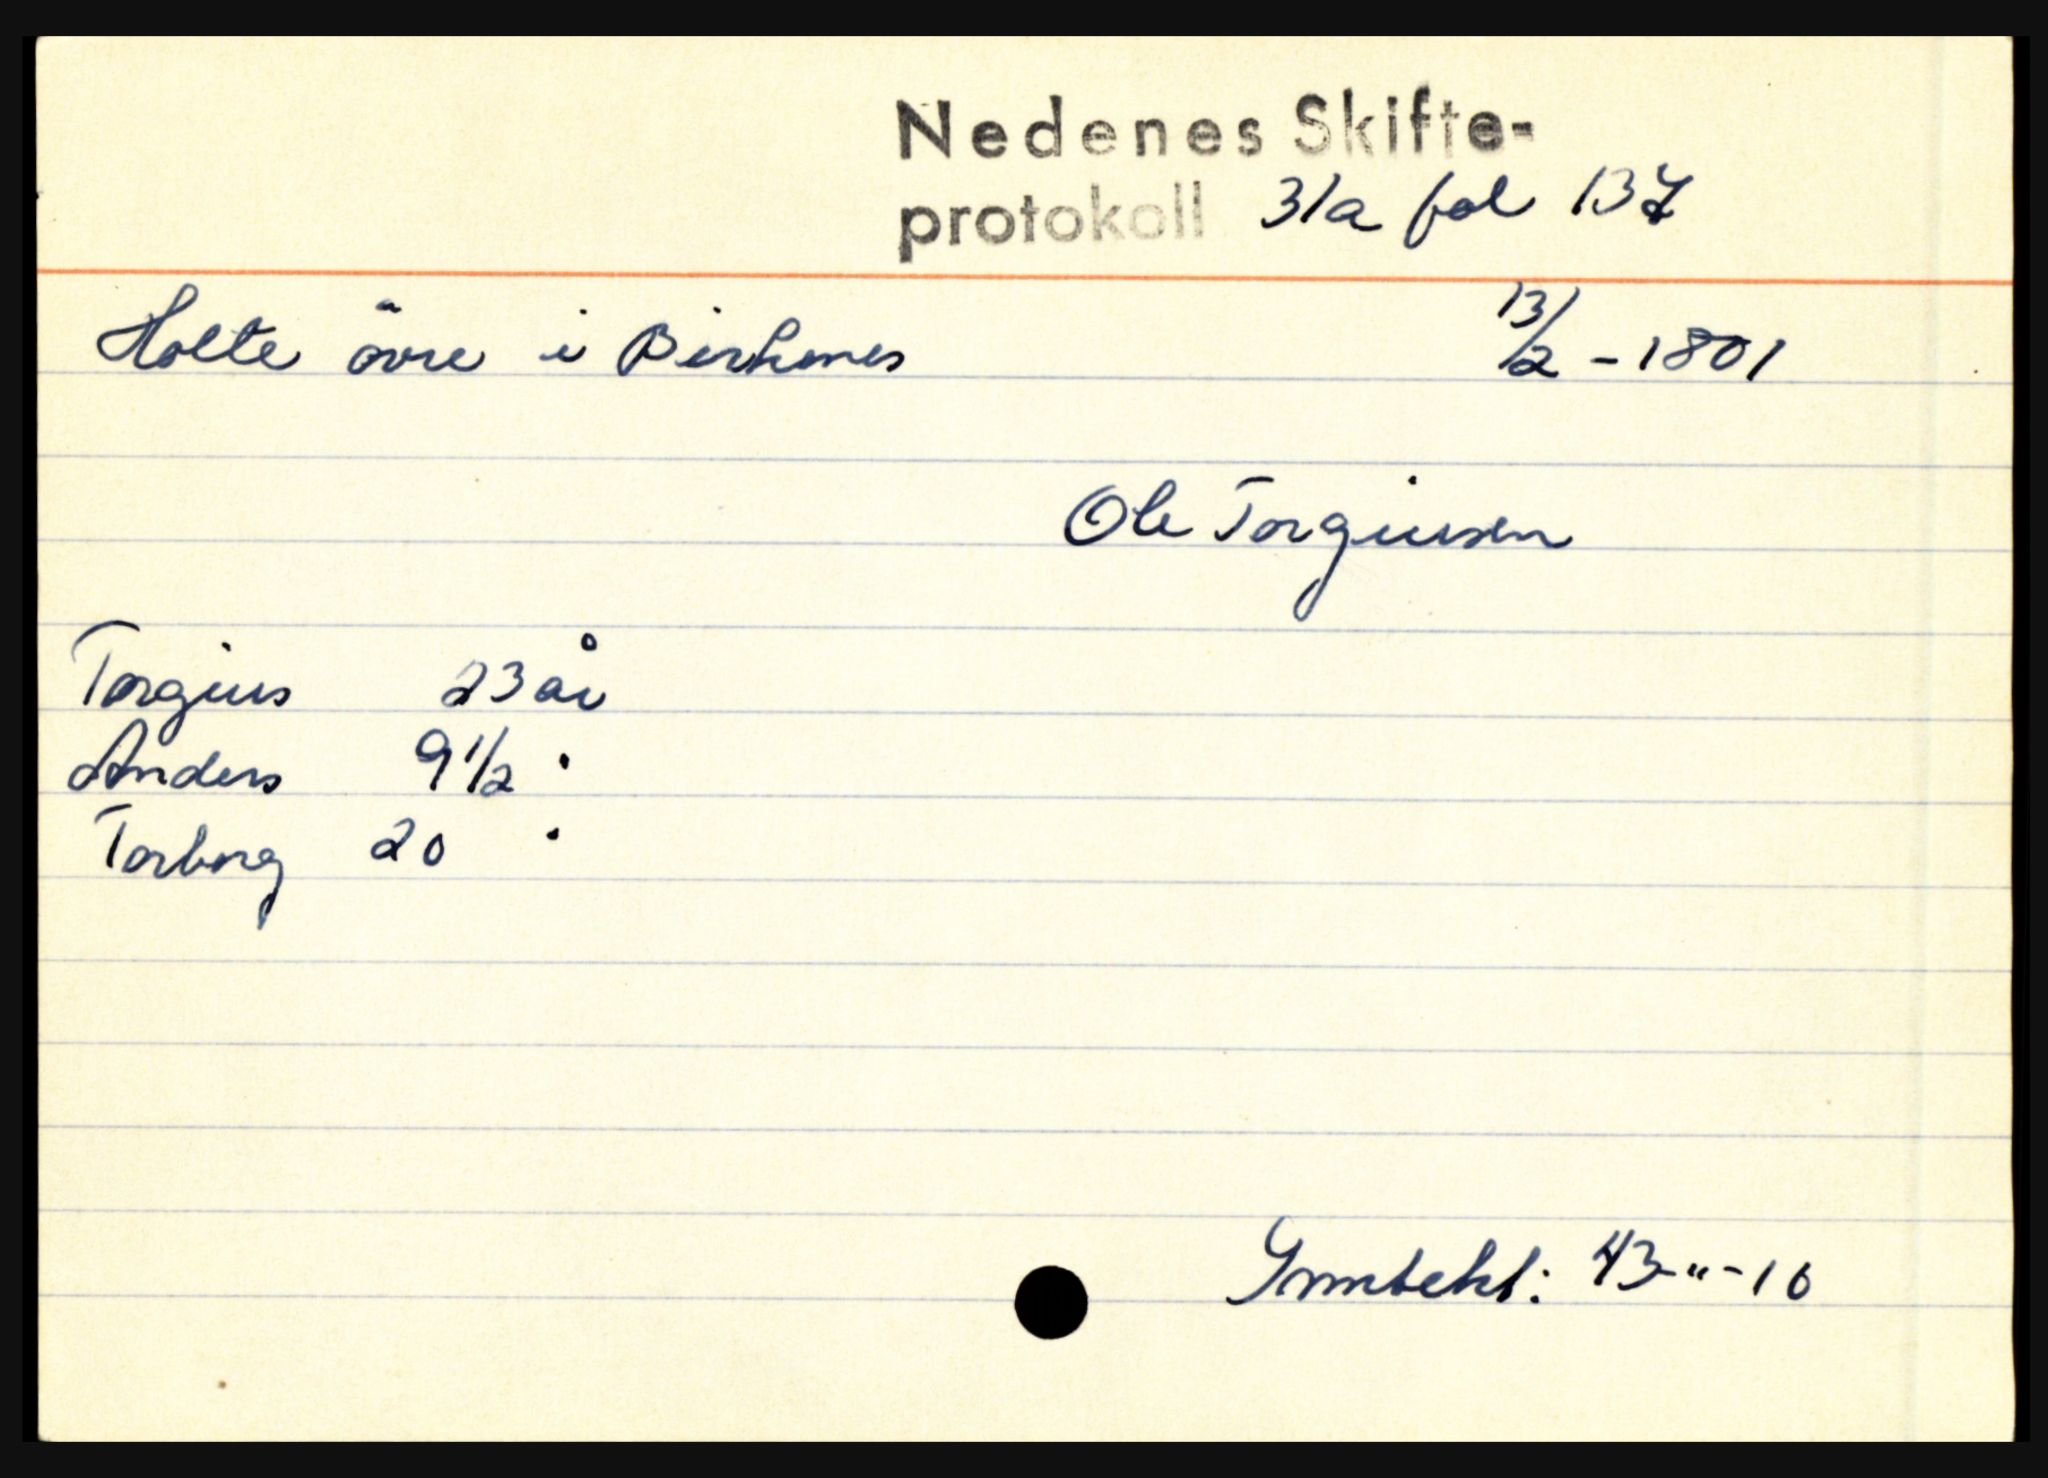 Nedenes Skifte-
protokoll 31a fol 137
Holte övre i Birkenes 13/2 - 1801
Ole Torgiusen
Torgius 23 år
Anders 9 1/2 "
Torborg 20 "
Inntekt: 43-"-10